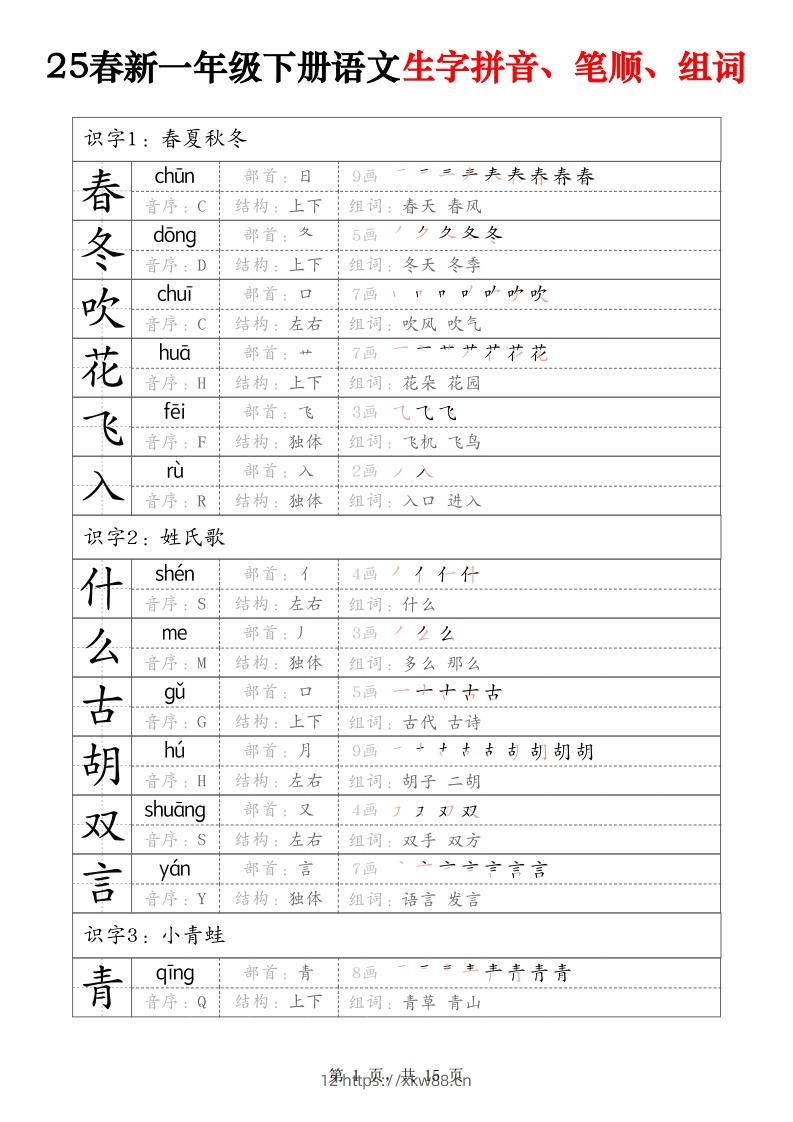 25春新一年级下册语文生字拼音、笔顺、组词
识字1：春夏秋冬
春 chūn 部首：日 9画
音序：C 结构：上下 组词：春天 春风
冬 dōng 部首：夂 5画
音序：D 结构：上下 组词：冬天 冬季
吹 chuī 部首：口 7画
音序：C 结构：左右 组词：吹风 吹气
花 huā 部首：艹 7画
音序：H 结构：上下 组词：花朵 花园
飞 fēi 部首：飞 3画
音序：F 结构：独体 组词：飞机 飞鸟
入 rù 部首：入 2画
音序：R 结构：独体 组词：入口 进入
识字2：姓氏歌
什 shén 部首：亻 4画
音序：S 结构：左右 组词：什么
么 me 部首：丿 3画
音序：M 结构：独体 组词：多么 那么
古 gǔ 部首：口 5画
音序：G 结构：上下 组词：古代 古诗
胡 hú 部首：月 9画
音序：H 结构：左右 组词：胡子 二胡
双 shuāng 部首：又 4画
音序：S 结构：左右 组词：双手 双方
言 yán 部首：言 7画
音序：Y 结构：独体 组词：语言 发言
识字3：小青蛙
青 qīng 部首：青 8画
音序：Q 结构：上下 组词：青草 青山
第 1 页，共 15 页
12https://xkw88.cn